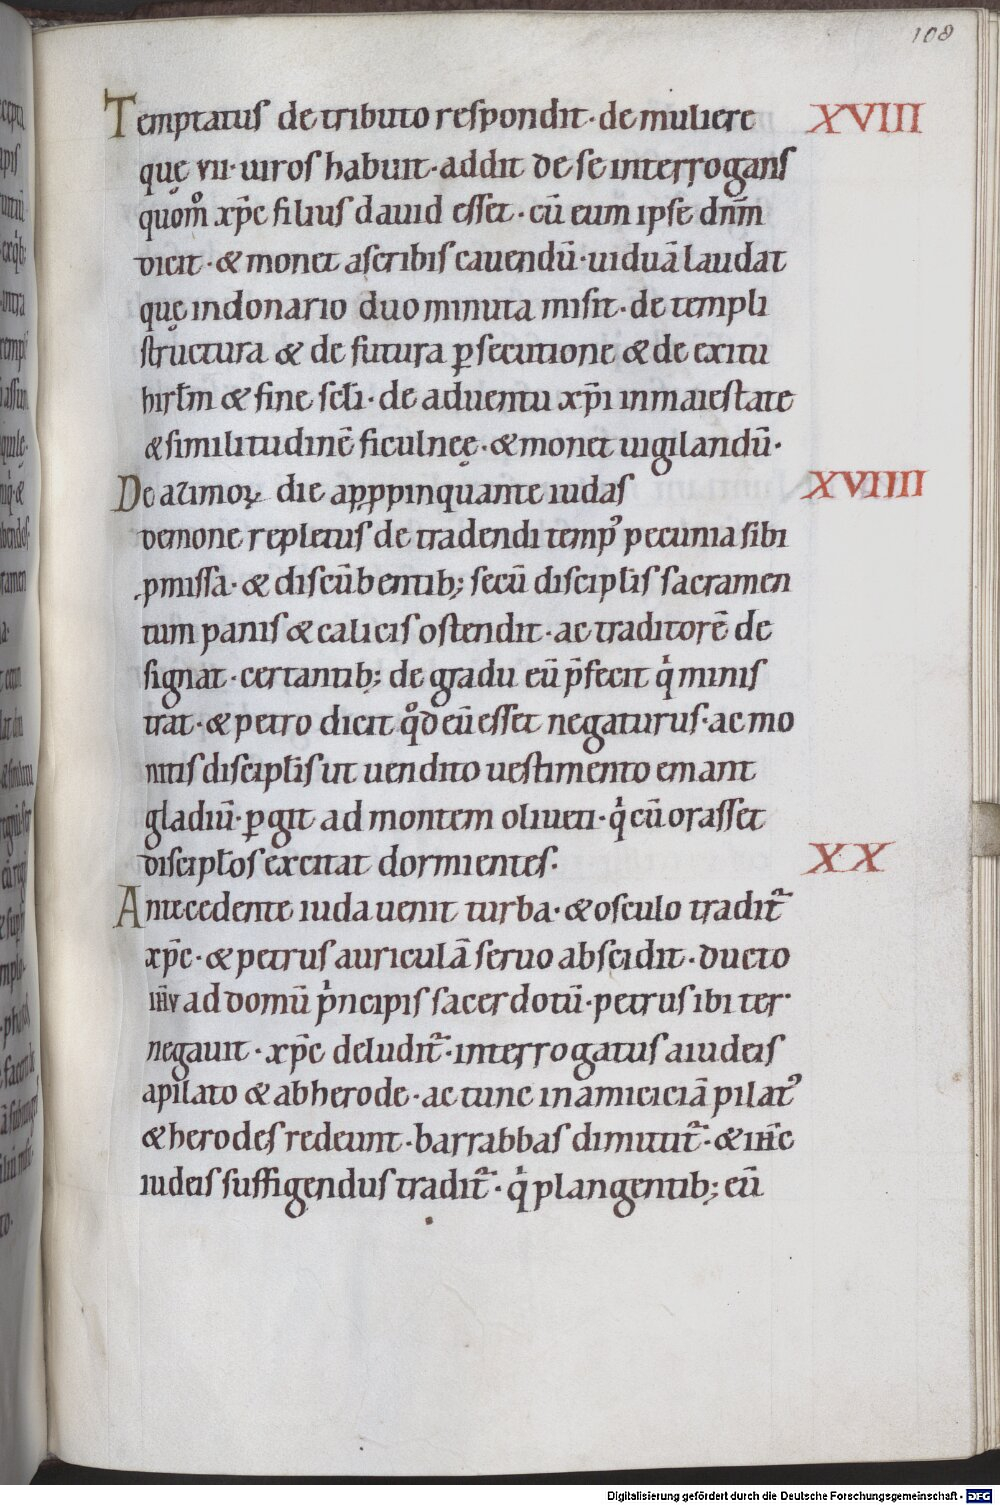 108
Temptatus de tributo respondit· de muliere XVIII
quę vii· uiros habuit· addit de se interrogans
quom̊ xp̄c filius dauid esset· cū eum ipse dnm̄
dicit· & monet a scribis cauendū· uiduā laudat
quę in donario duo minuta misit· de templi
structura & de futura ꝑsecutione & de exitu
hirłm & fine scłi· de aduentu xp̄i in maiestate
& similitudinē ficulneę· & monet uigilandū·
De azimoꝝ die aꝓpinquante iudas XVIIII
demone repletus de tradendi tempꝰ pecunia sibi
ꝓmissa· & discūbentib; secū discipłis sacramen
tum panis & calicis ostendit· ac traditorē de
signat· certantib; de gradu eū p̄fecit qͥ minis
trat· & petro dicit qͦd eū esset negaturus· ac mo
nitis discipłis ut uendito uestimento emant
gladiū· ꝑgit ad montem oliueti· qͥ cū orasset
discipłos excitat dormientes· XX
Antecedente iuda uenit turba· & osculo tradit᷑
xp̄c· & petrus auriculā seruo abscidit· ducto
ih̄v ad domū pͥncipis sacerdotū· petrus ibi ter·
negauit· xp̄c deludit᷑· interrogatus a iudeis
a pilato & ab herode· ac tunc in amiciciā pilatꝰ
& herodes redeunt· barrabbas dimittit᷑· & ih̄c
iudeis suffigendus tradit᷑· qͥ plangentib; eū
Digitalisierung gefördert durch die Deutsche Forschungsgemeinschaft - DFG